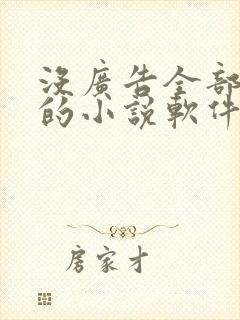 沒廣告全部
的小說軟件
房家才